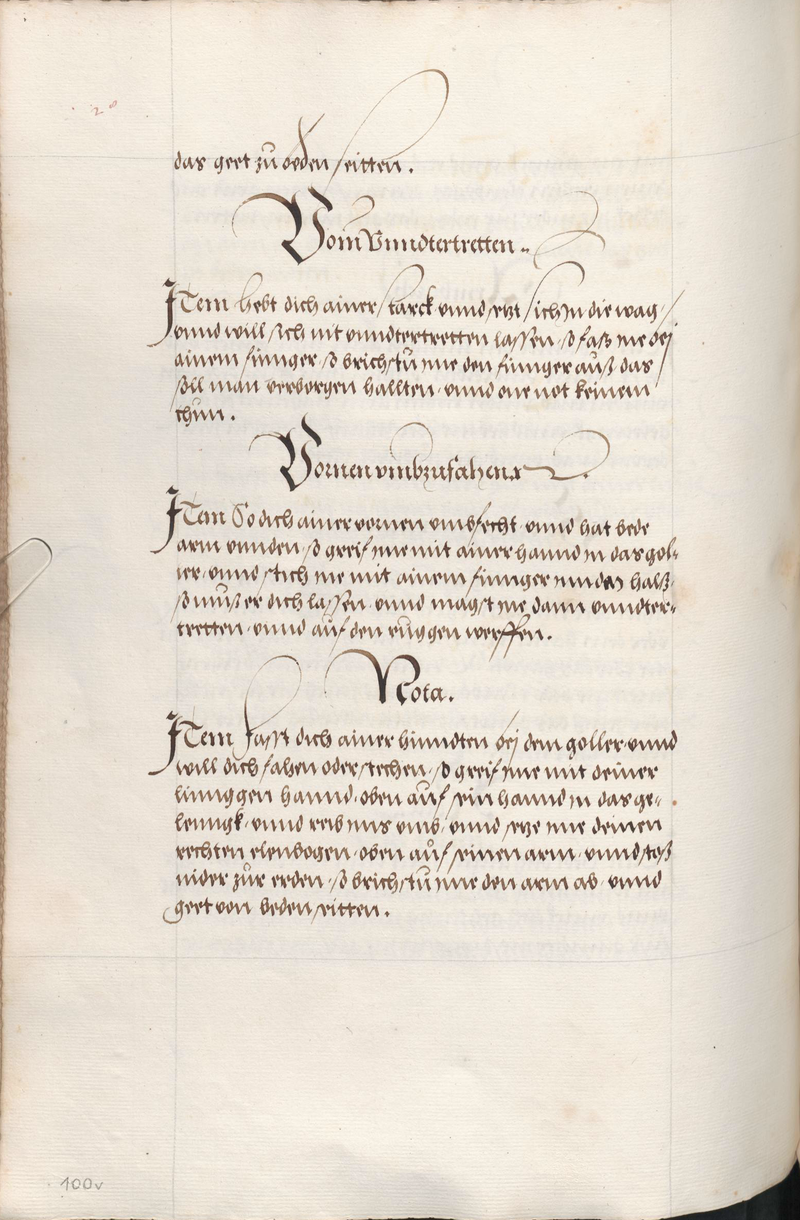 das geet zu beden seitten.
Vom Vnndtertretten.
ITem hebt dich ainer starck vnnd setzt sich jn die wag
vnnd will sich nit vnndtertretten lassen, so fass me bej
ainem finnger, so brichstu me den finnger auß das
soll man verborgen hallten, vnnd one not keinem
thun.
Vornen vmbzufahen
ITem So dich ainer vornen vmbfecht, vnnd hat bede
arm vnnden, so greif me mit ainer hannd jn das gol-
ler, vnnd stich me mit ainem finnger jnn den halß,
so muß er dich lassen, vnnd magst me dann vnndter-
tretten, vnnd auf den ruggen werffen.
Nota.
ITem fasst dich ainer hinndten bej dem goller, vnnd
will dich fahen oder stechen, so greif me mit deiner
linnggen hannd, oben auf sein hannd jn das ge-
lenngk, vnnd reib vmb, vnnd setze me deinen
rechten elenbogen, oben auf seinen arm, vnnd stoß
nider zur erden, so brichstu me den arm ab, vnnd
geet von beden seitten.
100v